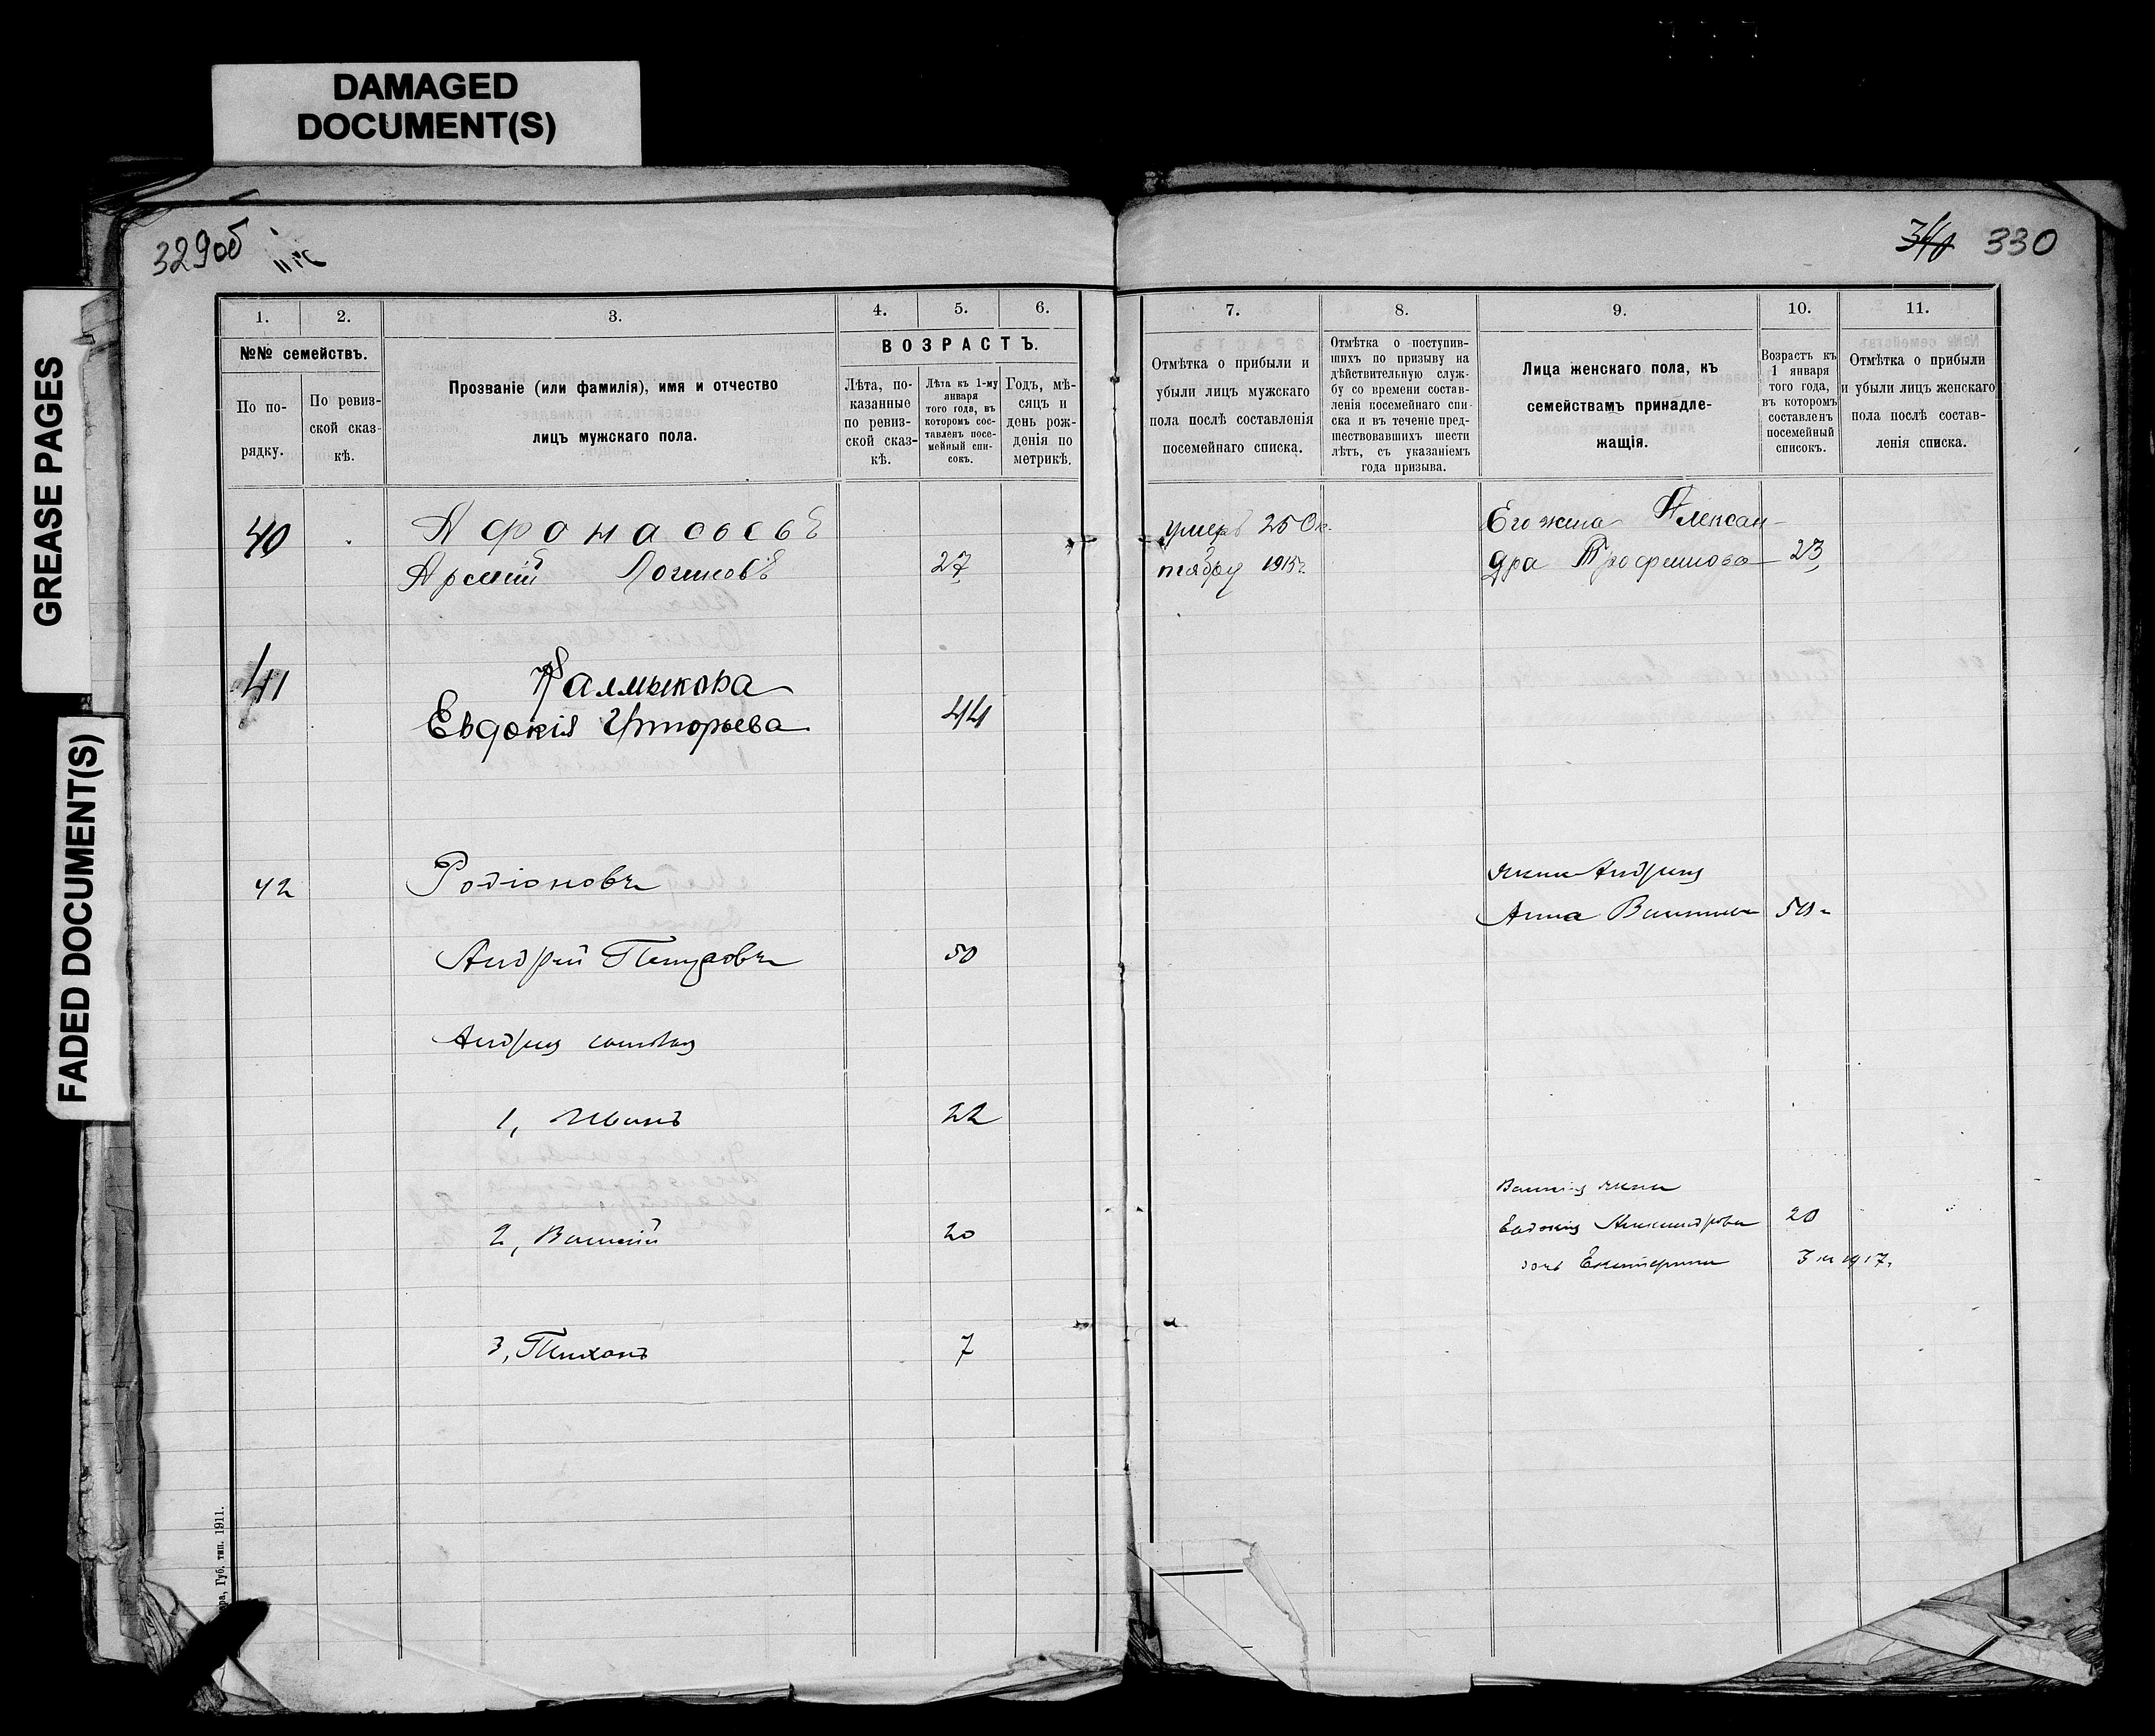 DAMAGED
DOCUMENT(S)
GREASE PAGES
FADED DOCUMENT(S)
329об
340 330
1.
2.
3.
4.
5.
6.
№№ семействъ.
По по-
рядку.
По ревиз-
ской сказ-
кѣ.
Прозваніе (или фамилія), имя и отчество
лицъ мужскаго пола.
ВОЗРАСТЪ.
Лѣта, по-
казанные
по ревиз-
ской сказ-
кѣ.
Лѣта къ 1-му
января
того года, въ
которомъ сос-
тавленъ посе-
мейный спи-
сокъ.
Годъ, мѣ-
сяцъ и
день рож-
денія по
метрикѣ.
7.
8.
9.
10.
11.
Отмѣтка о прибыли и
убыли лицъ мужскаго
пола послѣ составленія
посемейнаго списка.
Отмѣтка о поступив-
шихъ по призыву на
дѣйствительную служ-
бу со времени состав-
ленія посемейнаго спи-
ска и въ теченіе пред-
шествовавшихъ шести
лѣтъ, съ указаніемъ
года призыва.
Лица женскаго пола, къ
семействамъ принадле-
жащія.
Возрастъ къ
1 января
того года,
въ которомъ
составленъ
посемейный
списокъ.
Отмѣтка о прибыли
и убыли лицъ женскаго
пола послѣ состав-
ленія списка.
40 Афонасьевъ
Арсений Логиновъ 27
умеръ 25 Ок-
тября 1915г.
Его жена Алексан-
дра Трофимова 23
41 Калмыкова
Евдокія Григорьева 44
42 Родіоновъ
жена Андрея
Анна 50
Андрей 50
Андрея сыновья
1, Иванъ 22
2, Василій 20
Василія жена
Евдокия Александрова 20
дочь Екатерина 3 м 1917.
3, Тихонъ 7
Губ. тип. 1911.